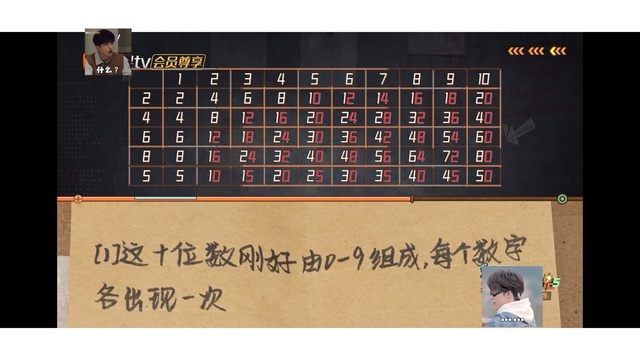 什么?
!tv 会员尊享
1 2 3 4 5 6 7 8 9 10
2 2 4 6 8 10 12 14 16 18 20
4 4 8 12 16 20 24 28 32 36 40
6 6 12 18 24 30 36 42 48 54 60
8 8 16 24 32 40 48 56 64 72 80
5 5 10 15 20 25 30 35 40 45 50
[1]这十位数刚好由0-9组成,每个数字
各出现一次